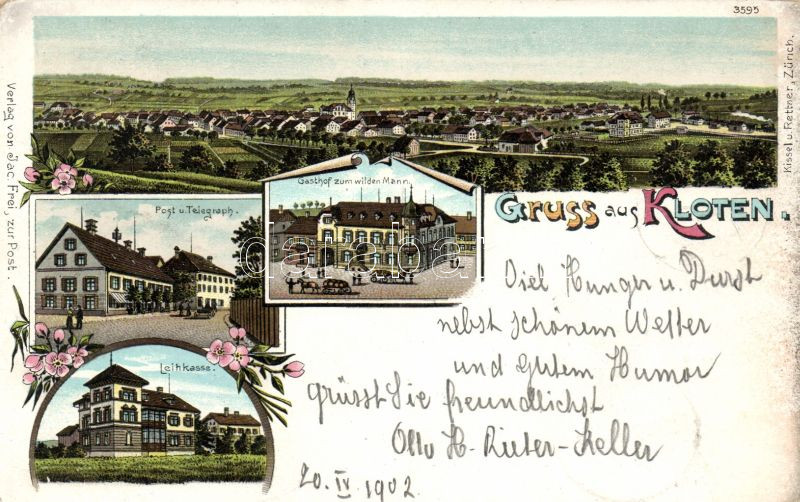 3595
Verlag von Jac. Frei, zur Post.
Kissel u. Rettner, Zürich.
Gasthof zum wilden Mann.
Post u. Telegraph.
Gruss aus Kloten.
Leihkasse.
darabanth
Viel Hunger u. Durst
nebst schönem Wetter
und gutem Humor
grüsst Sie freundlichst
Otto H. Rieter-Keller
20. IV 1902